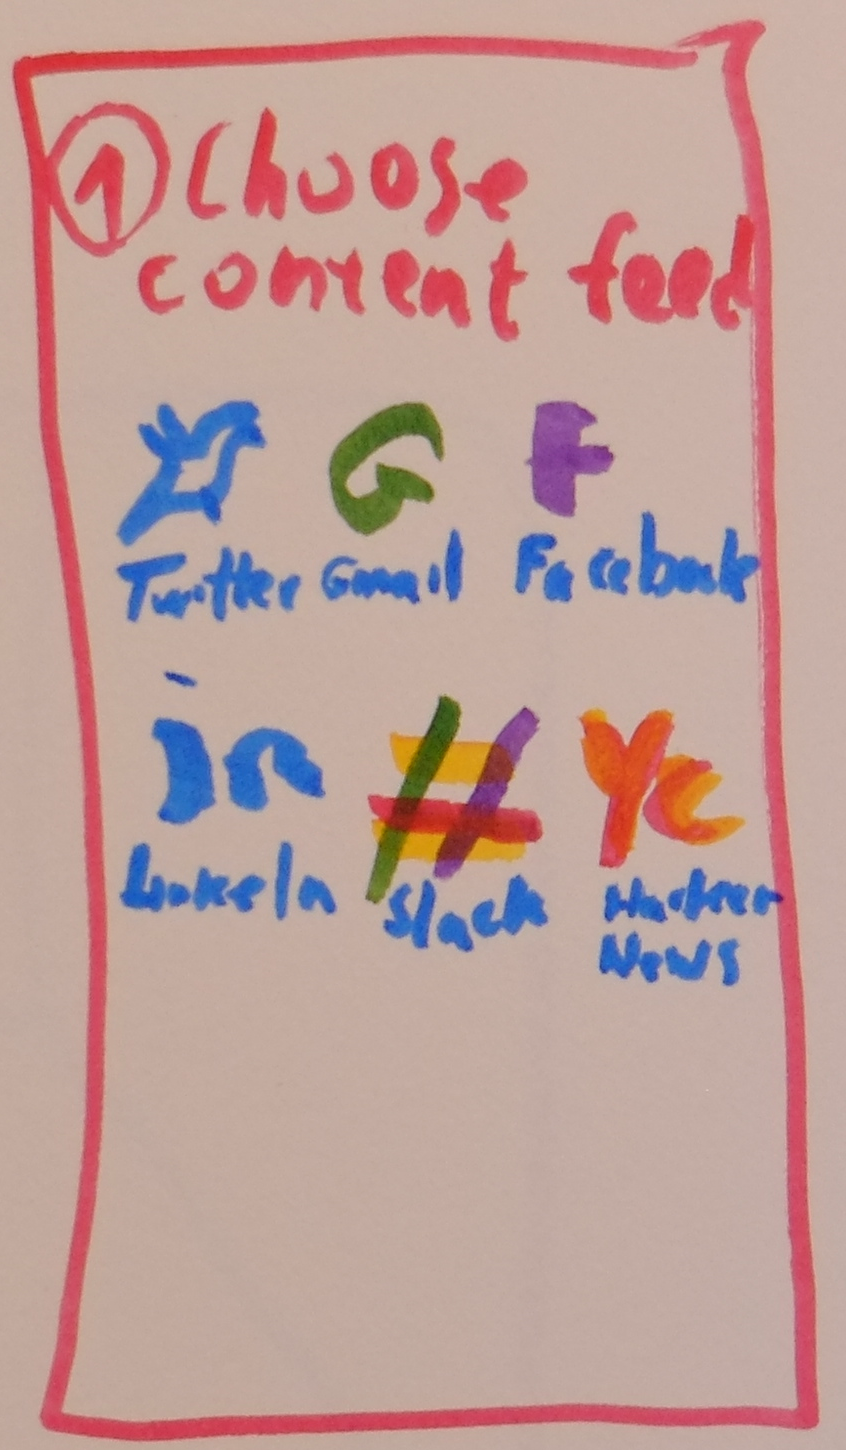 1 Choose
content feed
G F
Twitter Gmail Facebook
in # YC
LinkeIn Slack Hacker
News